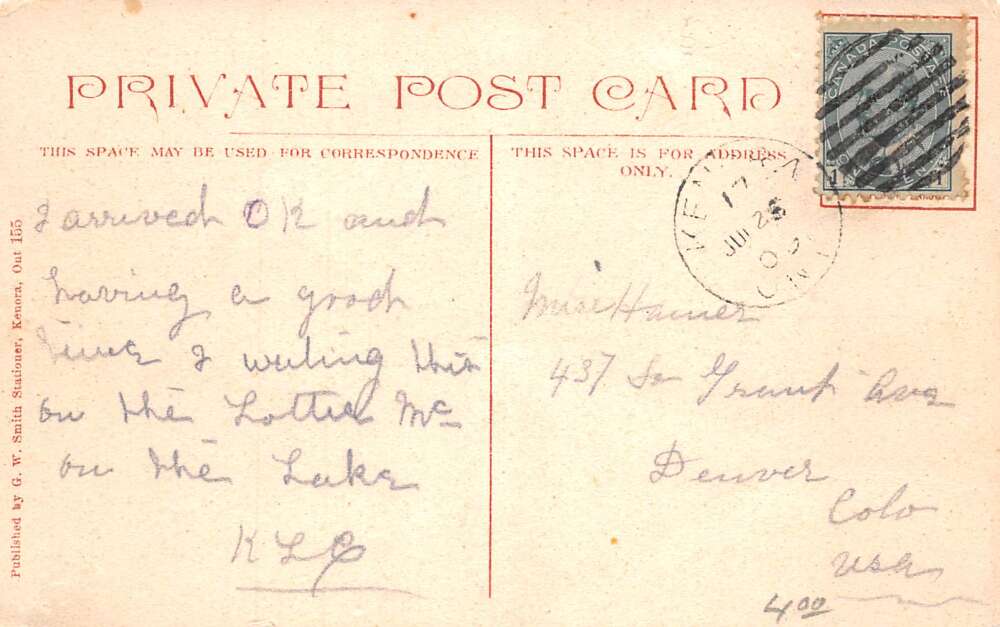 PRIVATE POST CARD
THIS SPACE MAY BE USED FOR CORRESPONDENCE
THIS SPACE IS FOR ADDRESS
ONLY.
CANADA POSTAGE
KENORA
17
JUL 26
ONT
I arrived OK and
having a good
time I writing this
on the Lottie Mc
on the Lake
KLC
Miss Hamer
437 So Grant Ave
Denver
Colo
USA
4.00
Published by G. W. Smith Stationer, Kenora, Ont 155